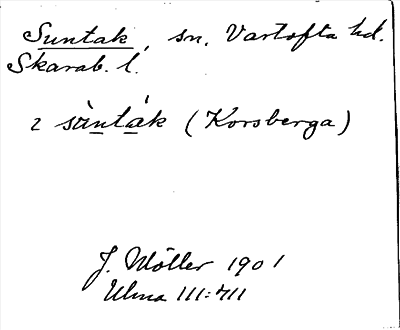 Suntak, sn. Vartofta hd.
Skarab. l.
2 sùnták (Korsberga)
J. Möller 1901
Ulma 111:411